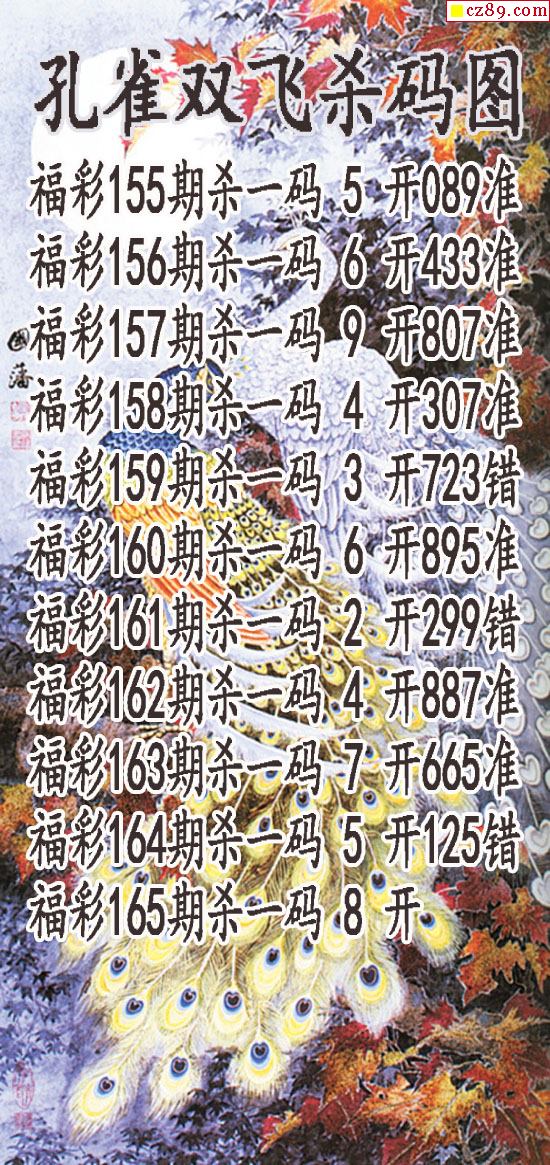 cz89.com
孔雀双飞杀码图
福彩155期杀一码 5 开089准
福彩156期杀一码 6 开433准
福彩157期杀一码 9 开807准
福彩158期杀一码 4 开307准
國藩
福彩159期杀一码 3 开723错
福彩160期杀一码 6 开895准
福彩161期杀一码 2 开299错
福彩162期杀一码 4 开887准
福彩163期杀一码 7 开665准
福彩164期杀一码 5 开125错
福彩165期杀一码 8 开